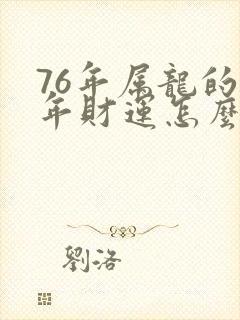 76年属龍的
年財運怎麼
劉洛